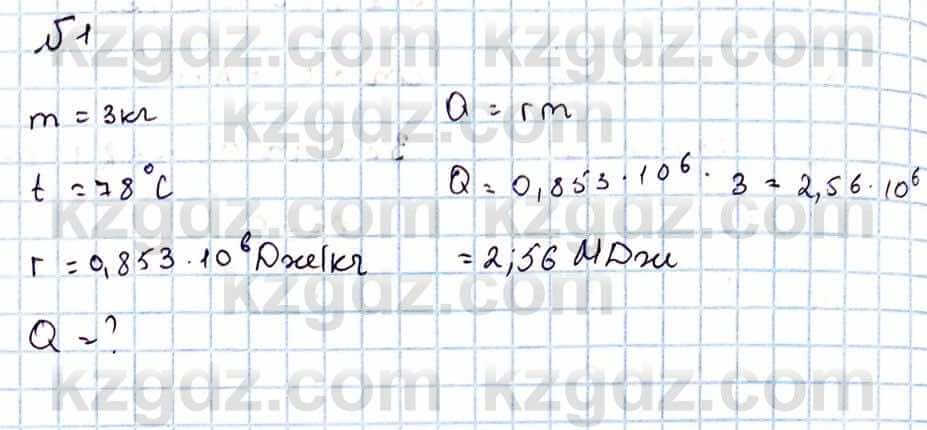 №1
m = 3кг
t = 78°C
r = 0,853·10⁶Дж/кг
Q = ?
Q = rm
Q = 0,853·10⁶·3 = 2,56·10⁶
= 2,56 МДж
kzgdz.com kzgdz.com
kzgdz.com
kzgdz.com kzgdz.com
kzgdz.com
kzgdz.com kzgdz.com